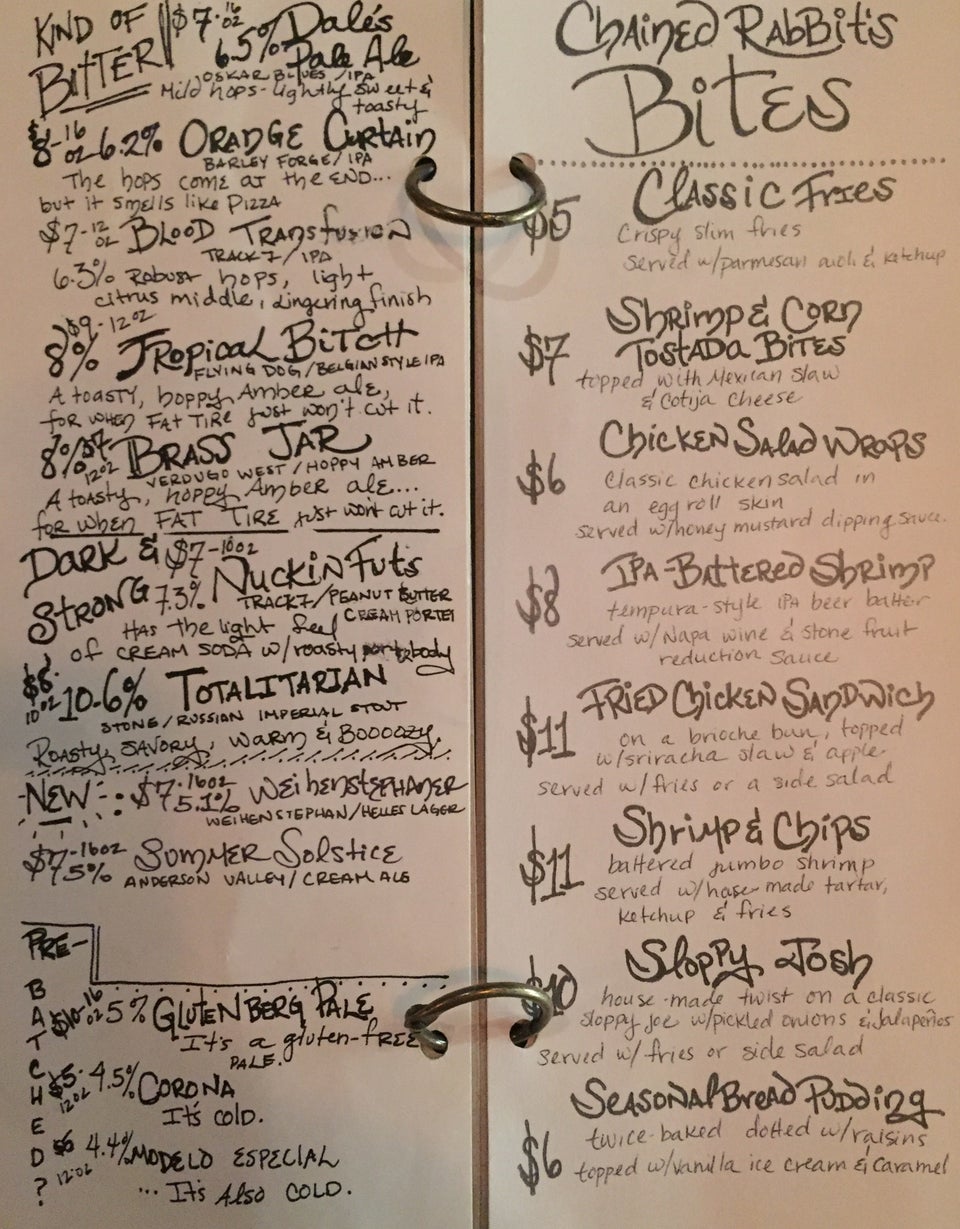 KIND OF BITTER
$7-16oz 6.5% Dale's Pale Ale
OSKAR BLUES/IPA
Mild hops-lightly sweet & toasty
$8-16oz 6.2% ORANGE CURTAIN
BARLEY FORGE/IPA
The hops come at the END...
but it smells like PIZZA
$7-12oz BLOOD TRANSFUSION
TRACK7/IPA
6.3% Robust hops, light
citrus middle, lingering finish
$9-12oz
8% TROPICAL BITCH
FLYING DOG/BELGIAN STYLE IPA
A toasty, hoppy Amber ale,
for when FAT TIRE just won't cut it.
8%/$7 12oz BRASS JAR
VERDUGO WEST/HOPPY AMBER
A toasty, hoppy Amber ale...
for when FAT TIRE just won't cut it.
DARK & STRONG
$7-16oz
7.3% NUCKIN FUTS
TRACK7/PEANUT BUTTER
CREAM PORTER
HAS the light feel
of CREAM SODA w/roasty body
$8 10oz 10.6% TOTALITARIAN
STONE/RUSSIAN IMPERIAL STOUT
Roasty, SAVORY, WARM & BOOOOZY.
NEW $7-16oz 5.1% WEIHENSTEPHANER
WEIHENSTEPHAN/HELLES LAGER
$7-16oz SUMMER SOLSTICE
ANDERSON VALLEY/CREAM ALE
PRE-
BATCHED?
$10-16oz 5% GLUTENBERG PALE
It's a gluten-FREE
PALE.
$5-12oz 4.5% CORONA
It's COLD.
$6 12oz 4.4% MODELO ESPECIAL
...It's Also COLD.
CHAINED RABBIT'S
BITES
CLASSIC FRIES
$5
Crispy slim fries
served w/parmesan & ketchup
Shrimp & CORN
$7 TOSTADA BITES
topped with Mexican slaw
& Cotija cheese
CHICKEN SALAD WRAPS
$6 Classic chicken salad in
an egg roll skin
served w/honey mustard dipping sauce.
IPA-BATTERED SHRIMP
$8 tempura-style IPA beer batter
served w/Napa wine & stone fruit
reduction sauce
FRIED CHICKEN SANDWICH
$11 on a brioche bun, topped
w/sriracha slaw & apple
served w/fries or a side salad
Shrimp & Chips
$11 battered jumbo shrimp
served w/house-made tartar,
ketchup & fries
Sloppy Josh
$10 house-made twist on a classic
sloppy joe w/pickled onions & jalapeños
served w/ fries or side salad
SEASONAL BREAD PUDDING
twice-baked dotted w/raisins
$6 topped w/vanilla ice cream & caramel